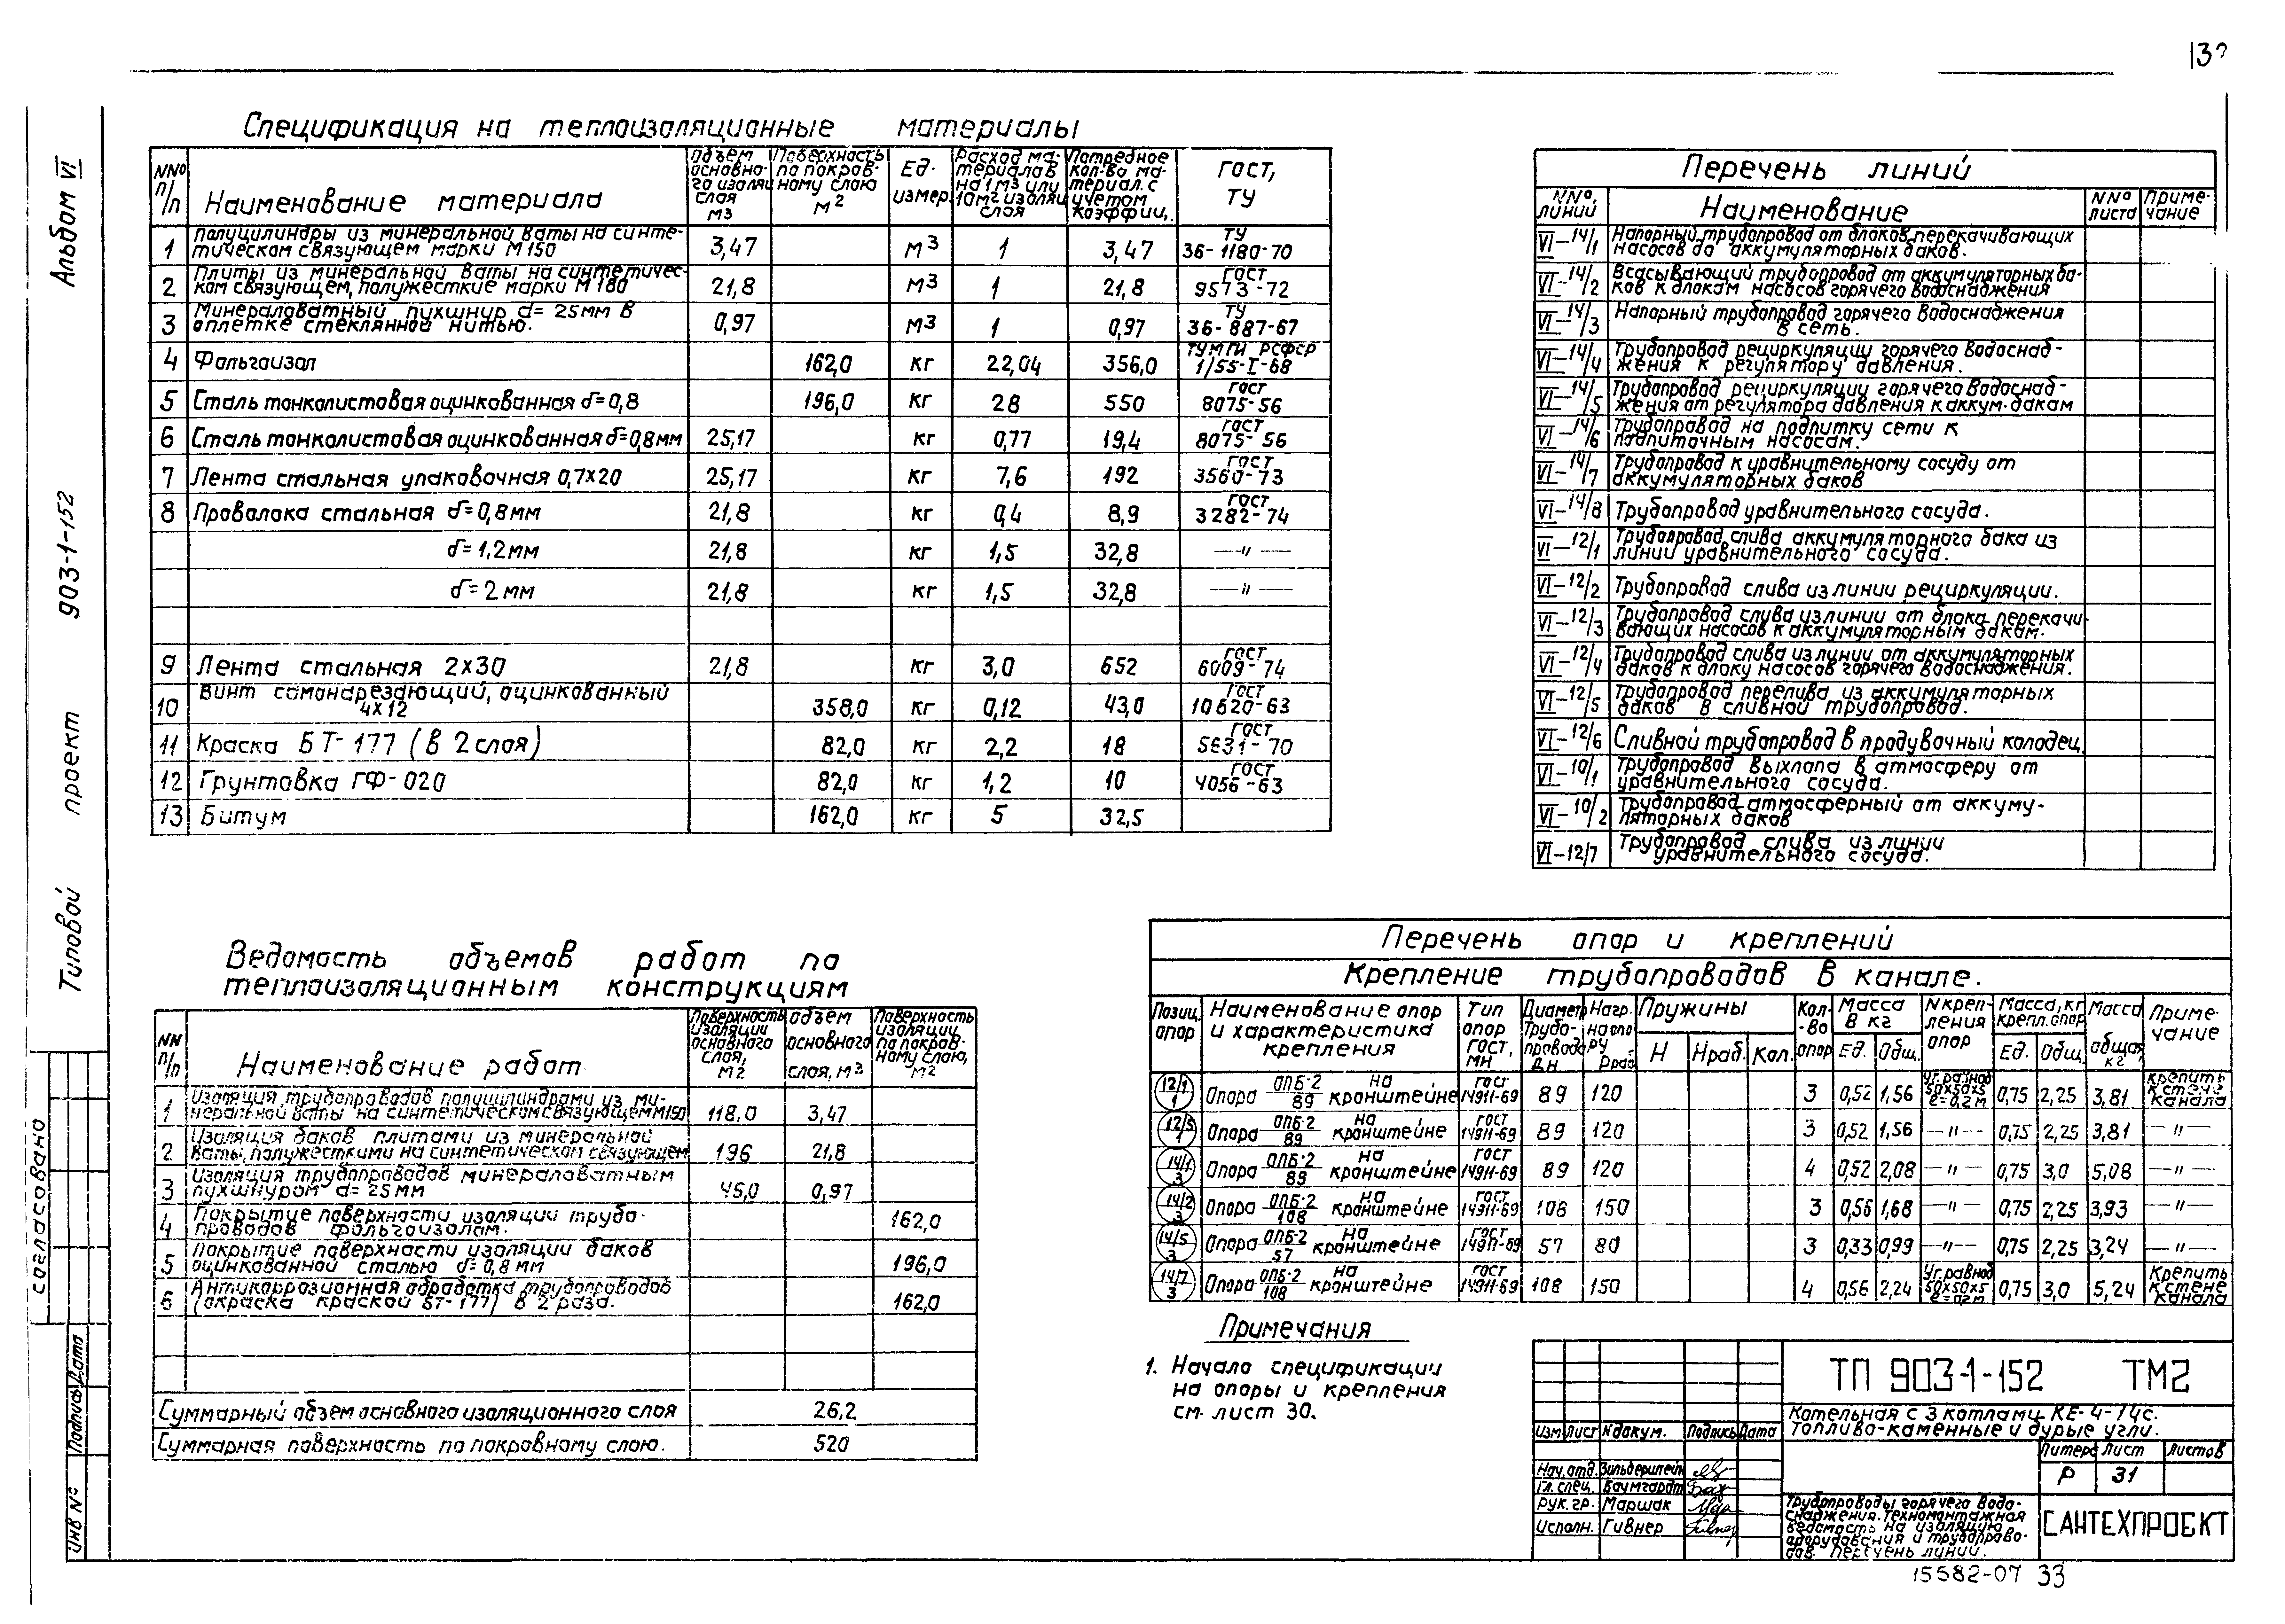 Альбом VI
Типовой проект 903-1-152
Согласовано
Инв № Подпись Дата
Спецификация на теплоизоляционные материалы
NNº п/п | Наименование материала | Объем основного изоляц. слоя м3 | Поверхность по покровному слою м2 | Ед. измер. | Расход материалов на 1м3 или 10м2 изоляц. слоя | Потребное кол-во материал. с учетом коэффиц. | ГОСТ, ТУ
1 Полуцилиндры из минеральной ваты на синтетическом связующем марки М150 3,47 м3 1 3,47 ТУ 36-1180-70
2 Плиты из минеральной ваты на синтетическом связующем, полужесткие марки М180 21,8 м3 1 21,8 ГОСТ 9573-72
3 Минераловатный пухшнур d=25мм в оплетке стеклянной нитью. 0,97 м3 1 0,97 ТУ 36-887-67
4 Фольгоизол 162,0 кг 22,04 356,0 ТУМГИ РСФСР 1/55-I-68
5 Сталь тонколистовая оцинкованная δ=0,8 196,0 кг 28 550 ГОСТ 8075-56
6 Сталь тонколистовая оцинкованная δ=0,8мм 25,17 кг 0,77 19,4 ГОСТ 8075-56
7 Лента стальная упаковочная 0,7х20 25,17 кг 7,6 192 ГОСТ 3560-73
8 Проволока стальная δ=0,8мм 21,8 кг 0,4 8,9 ГОСТ 3282-74
δ=1,2мм 21,8 кг 1,5 32,8 —"—
δ=2мм 21,8 кг 1,5 32,8 —"—
9 Лента стальная 2х30 21,8 кг 3,0 652 ГОСТ 6009-74
10 Винт самонарезающий, оцинкованный 4х12 358,0 кг 0,12 43,0 ГОСТ 10620-63
11 Краска БТ-177 (в 2 слоя) 82,0 кг 2,2 18 ГОСТ 5631-70
12 Грунтовка ГФ-020 82,0 кг 1,2 10 ГОСТ 4056-63
13 Битум 162,0 кг 5 32,5
Перечень линий
NNº, линий | Наименование | NNº листа | Примечание
VI-14/1 Напорный трубопровод от блоков перекачивающих насосов до аккумуляторных баков.
VI-14/2 Всасывающий трубопровод от аккумуляторных баков к блокам насосов горячего водоснабжения
VI-14/3 Напорный трубопровод горячего водоснабжения в сеть.
VI-14/4 Трубопровод рециркуляции горячего водоснабжения к регулятору давления.
VI-14/5 Трубопровод рециркуляции горячего водоснабжения от регулятора давления к аккум. бакам
VI-14/6 Трубопровод на подпитку сети к подпиточным насосам.
VI-14/7 Трубопровод к уравнительному сосуду от аккумуляторных баков
VI-14/8 Трубопровод уравнительного сосуда.
VI-12/1 Трубопровод слива аккумуляторного бака из линии уравнительного сосуда.
VI-12/2 Трубопровод слива из линии рециркуляции.
VI-12/3 Трубопровод слива из линии от блока перекачивающих насосов к аккумуляторным бакам.
VI-12/4 Трубопровод слива из линии от аккумуляторных баков к блоку насосов горячего водоснабжения.
VI-12/5 Трубопровод перелива из аккумуляторных баков в сливной трубопровод.
VI-12/6 Сливной трубопровод в продувочный колодец
VI-10/1 Трубопровод выхлопа в атмосферу от уравнительного сосуда.
VI-10/2 Трубопровод атмосферный от аккумуляторных баков
VI-12/7 Трубопровод слива из линии уравнительного сосуда.
Ведомость объемов работ по
теплоизоляционным конструкциям
NN п/п | Наименование работ | Поверхность изоляции основного слоя, м2 | Объем основного слоя, м3 | Поверхность изоляции по покровному слою, м2
1 Изоляция трубопроводов полуцилиндрами из минеральной ваты на синтетическом связующем М150 118.0 3,47
2 Изоляция баков плитами из минеральной ваты, полужесткими на синтетическом связующем 196 21,8
3 Изоляция трубопроводов минераловатным пухшнуром d=25мм 45,0 0,97
4 Покрытие поверхности изоляции трубопроводов фольгоизолам. 162,0
5 Покрытие поверхности изоляции баков оцинкованной сталью δ=0,8мм 196,0
6 Антикоррозионная обработка трубопроводов (окраска краской БТ-177) в 2 раза. 162,0
Суммарный объем основного изоляционного слоя 26,2
Суммарная поверхность по покровному слою. 520
Перечень опор и креплений
Крепление трубопроводов в канале.
Позиц. опор | Наименование опор и характеристика крепления | Тип опор ГОСТ, МН | Диаметр трубопровода Дн | Нагр. на опору Рраб | Пружины Н Нраб. Кол. | Кол-во опор | Масса в кг Ед. Общ. | N крепления опор | Масса, кг крепл. опор Ед. Общ. | Масса общая, кг | Примечание
12/1 1 Опора ОПБ-2/89 на кронштейне ГОСТ 14911-69 89 120 3 0,52 1,56 Уг. равноб 50х50х5 ℓ=0,2м 0,75 2,25 3,81 Крепить к стене канала
12/5 1 Опора ОПБ-2/89 на кронштейне ГОСТ 14911-69 89 120 3 0,52 1,56 —"— 0,75 2,25 3,81 —"—
14/1 3 Опора ОПБ-2/89 на кронштейне ГОСТ 14911-69 89 120 4 0,52 2,08 —"— 0,75 3,0 5,08 —"—
14/2 3 Опора ОПБ-2/108 на кронштейне ГОСТ 14911-69 108 150 3 0,56 1,68 —"— 0,75 2,25 3,93 —"—
14/5 3 Опора ОПБ-2/57 на кронштейне ГОСТ 14911-69 57 80 3 0,33 0,99 —"— 0,75 2,25 3,24 —"—
14/7 3 Опора ОПБ-2/108 на кронштейне ГОСТ 14911-69 108 150 4 0,56 2,24 Уг. равноб 50х50х5 ℓ=0,2м 0,75 3,0 5,24 Крепить к стене канала
Примечания
1. Начало спецификации
на опоры и крепления
см. лист 30.
ТП 903-1-152 ТМ2
Котельная с 3 котлами КЕ-4-14с.
Топливо-каменные и бурые угли.
Изм Лист N докум. Подпись Дата
Нач. отд. Зильберштейн
Гл. спец. Баумгардт
Рук. гр. Маршак
Исполн. Гивнер
Литера Лист Листов
Р 31
Трубопроводы горячего водо-
снабжения. Техномонтажная
ведомость на изоляцию
оборудования и трубопрово-
дов. Перечень линий.
САНТЕХПРОЕКТ
15582-07 33